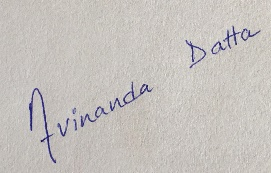 Avinanda Datta